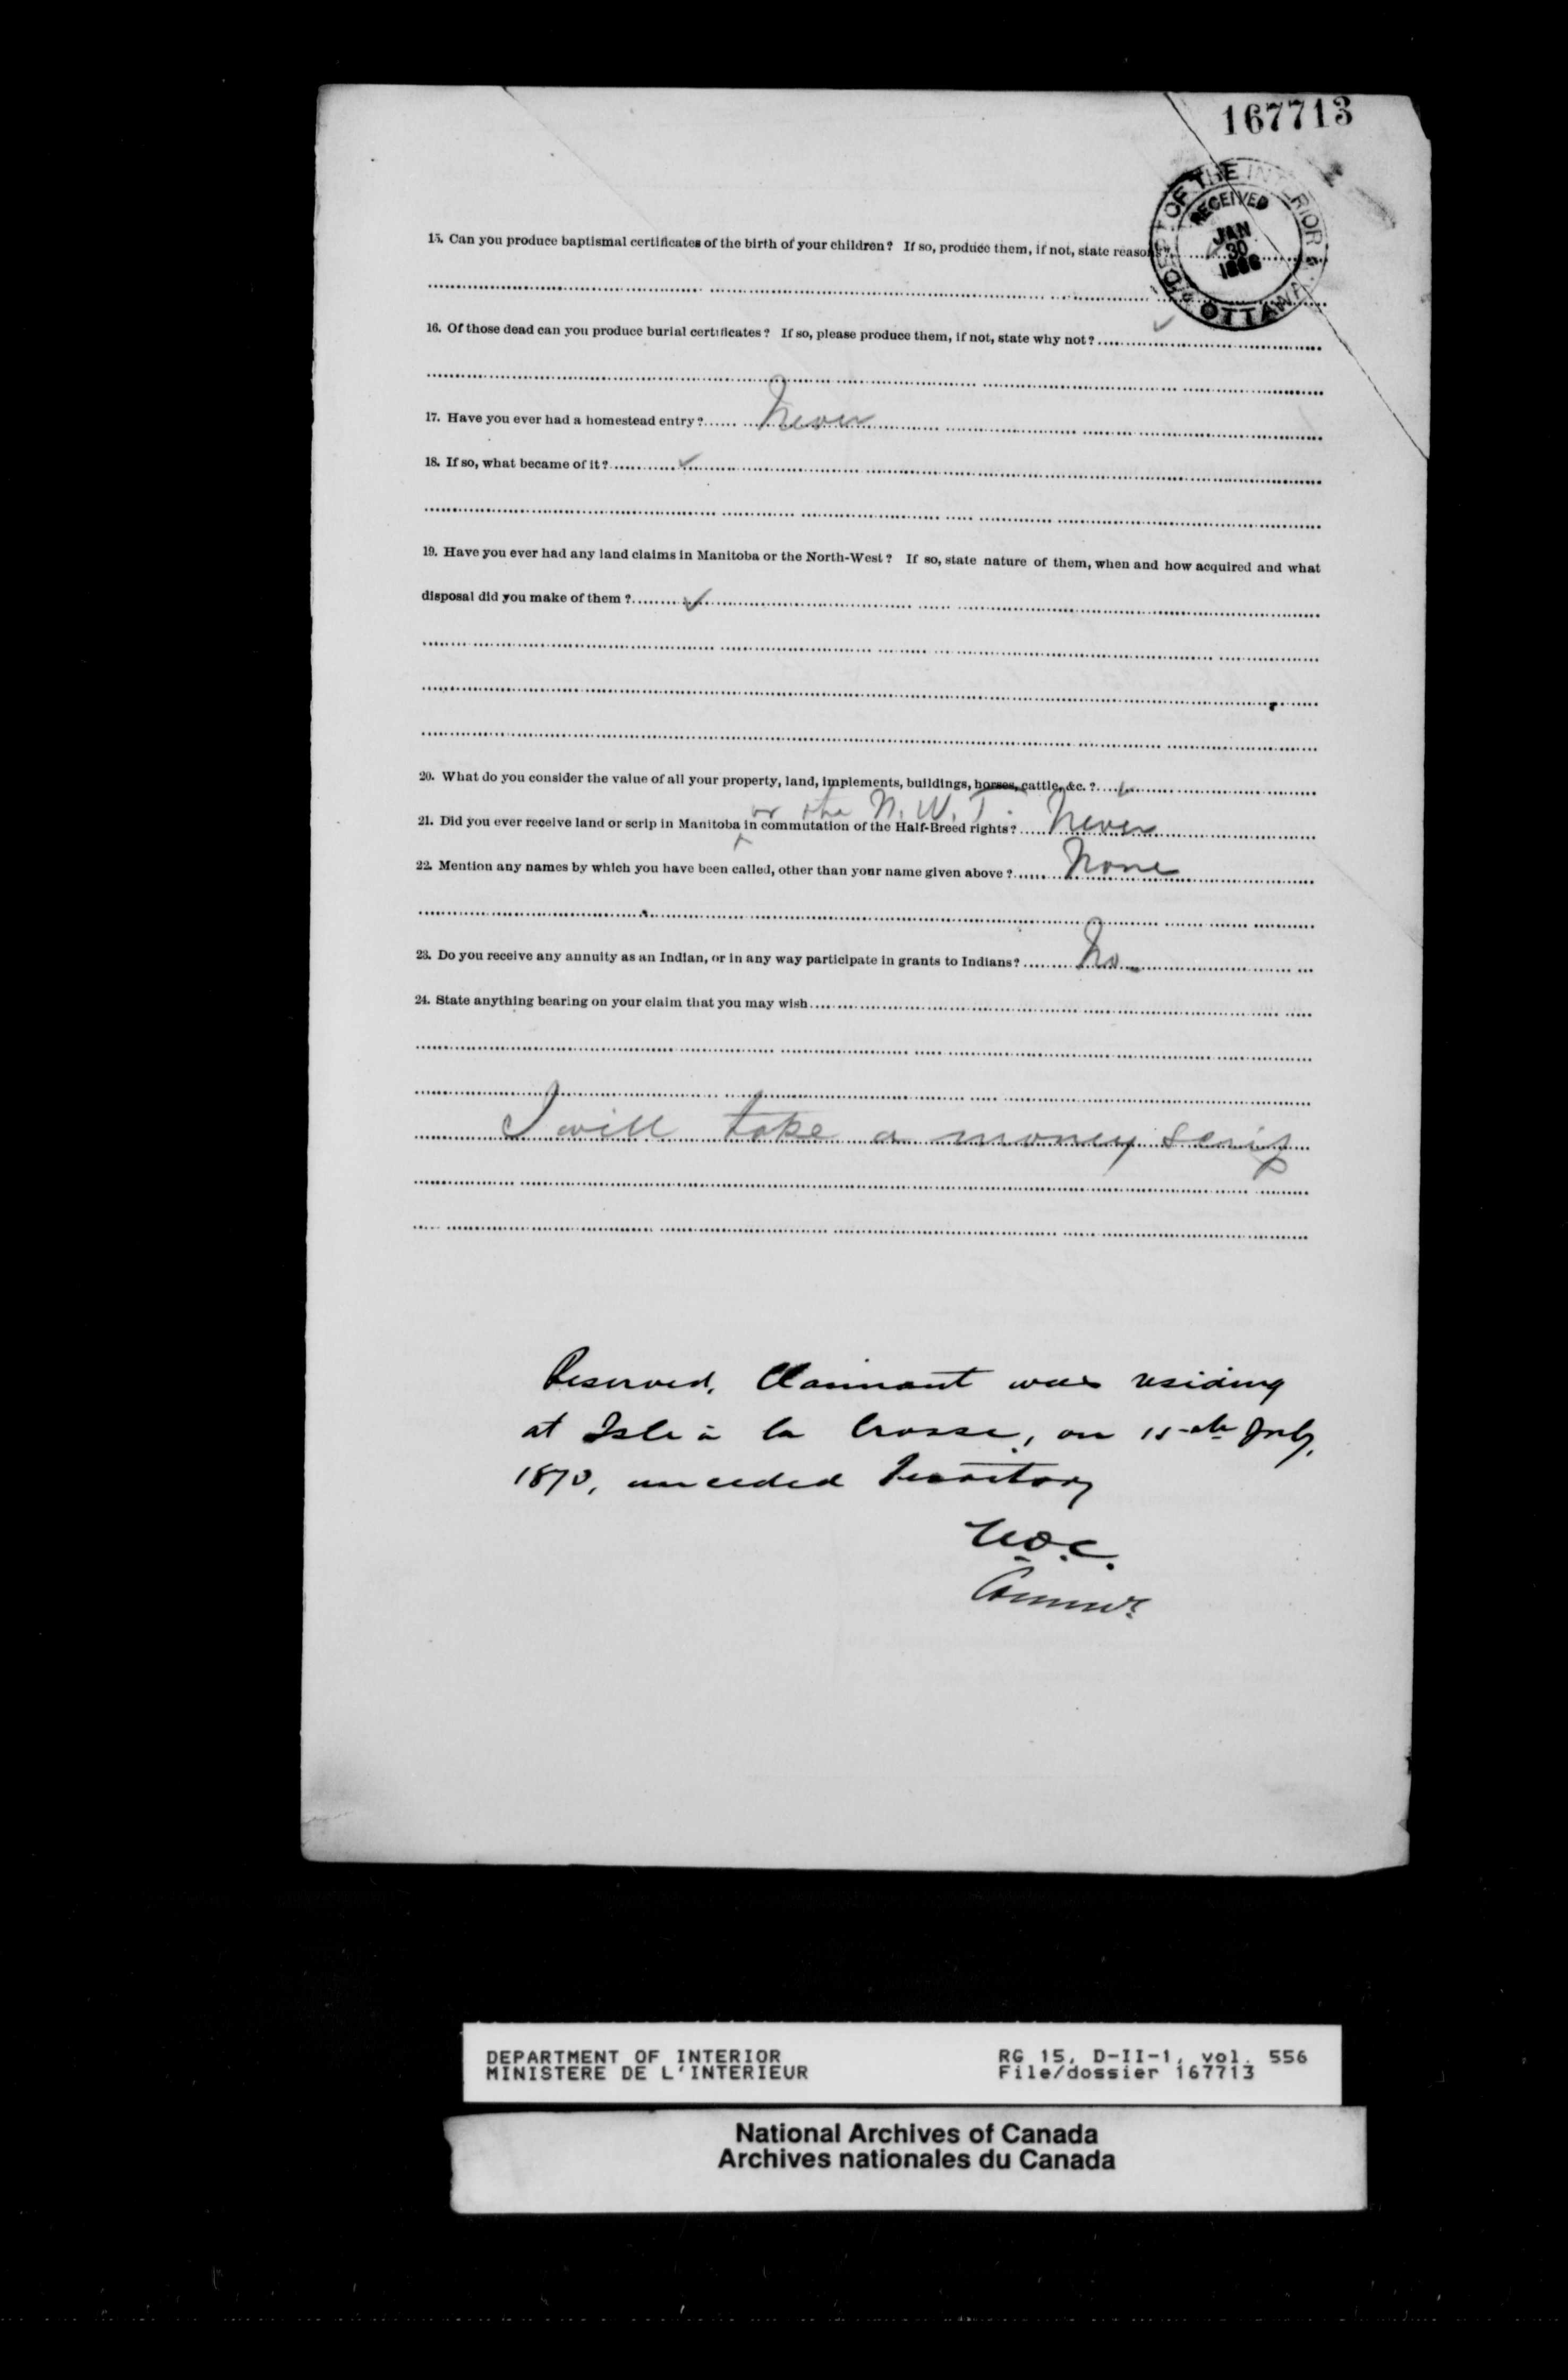 167713
DEPT OF THE INTERIOR
RECEIVED
JAN
30
1886
OTTAWA
15. Can you produce baptismal certificates of the birth of your children? If so, produce them, if not, state reasons?
16. Of those dead can you produce burial certificates? If so, please produce them, if not, state why not?
17. Have you ever had a homestead entry? Never
18. If so, what became of it?
19. Have you ever had any land claims in Manitoba or the North-West? If so, state nature of them, when and how acquired and what
disposal did you make of them?
20. What do you consider the value of all your property, land, implements, buildings, horses, cattle, &c.?
or the N. W. T.
21. Did you ever receive land or scrip in Manitoba in commutation of the Half-Breed rights? Never
22. Mention any names by which you have been called, other than your name given above? None
23. Do you receive any annuity as an Indian, or in any way participate in grants to Indians? No
24. State anything bearing on your claim that you may wish
I will take a money scrip
Reserved. Claimant was residing
at Isle à la Crosse, on 15th July,
1870, unceded Territory
Commr.
DEPARTMENT OF INTERIOR RG 15, D-II-1, vol. 556
MINISTERE DE L'INTERIEUR File/dossier 167713
National Archives of Canada
Archives nationales du Canada